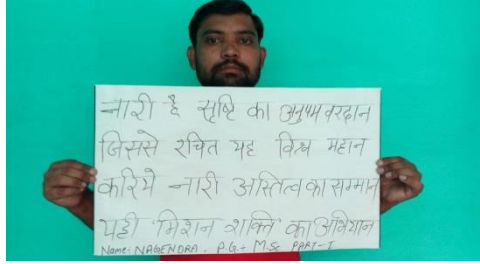 नारी है सृष्टि का अनुपम वरदान
जिससे रचित यह विश्व महान
करिये नारी अस्तित्व का सम्मान
यही 'मिशन शक्ति' का अभियान
Name:- NAGENDRA . P.G:- M.Sc PART-I